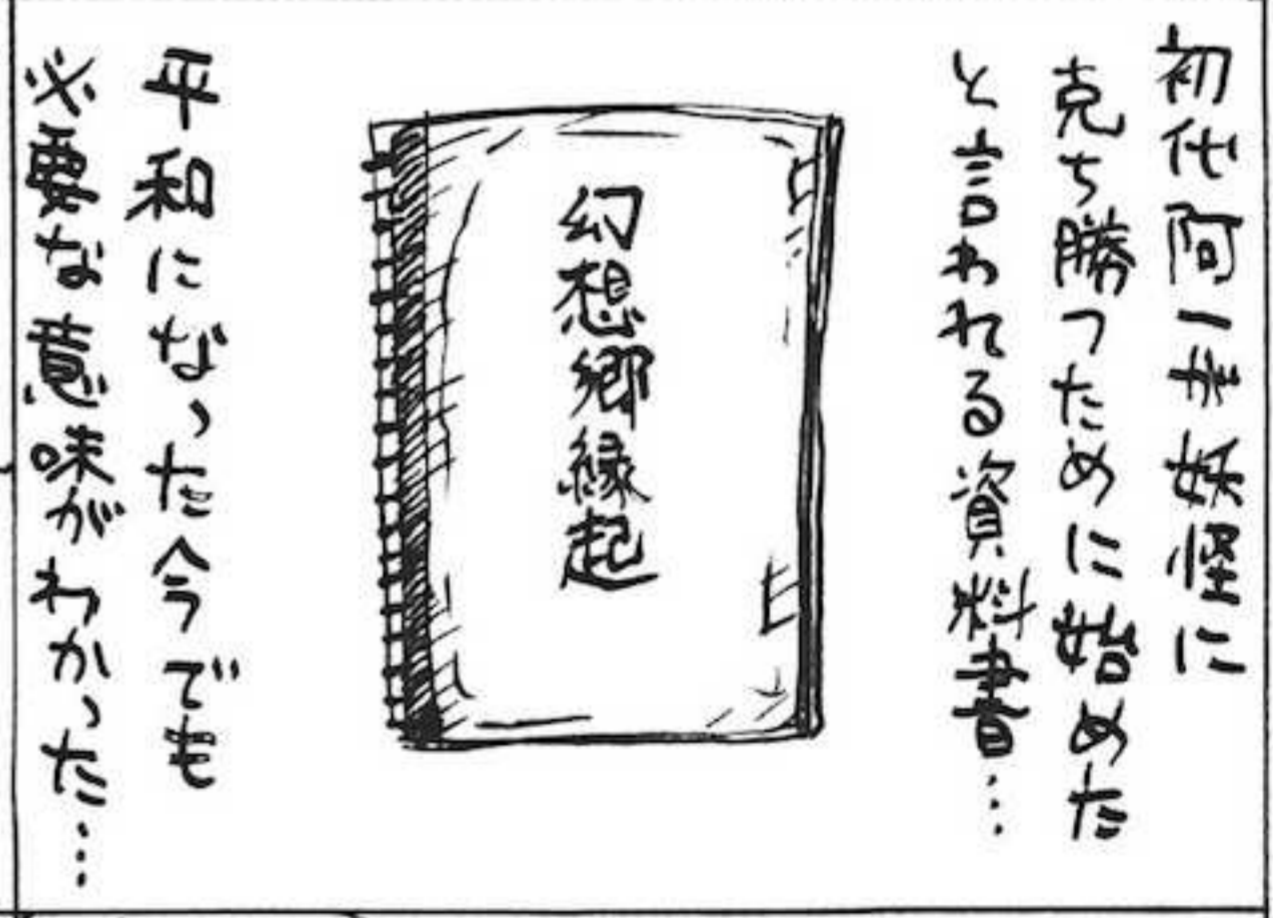 初代阿一が妖怪に
克ち勝つために始めた
と言われる資料書…
幻想郷縁起
平和になった今でも
必要な意味がわかった…